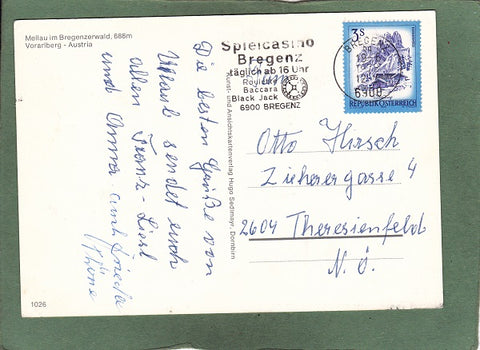 Mellau im Bregenzerwald, 688m
Vorarlberg - Austria
Die besten Grüße von
Urlaub sendet euch
allen Franz - Liesl
und Anna auch
1026
Kunst- und Ansichtskartenverlag Hugo Sedlmayr, Dornbirn
Spielcasino
Bregenz
täglich ab 16 Uhr
Roulette
Baccara
Black Jack
6900 BREGENZ
BREGENZ
6900
3 S
REPUBLIK ÖSTERREICH
Otto Hirsch
Zieherergasse 4
2604 Theresienfeld
N. Ö.